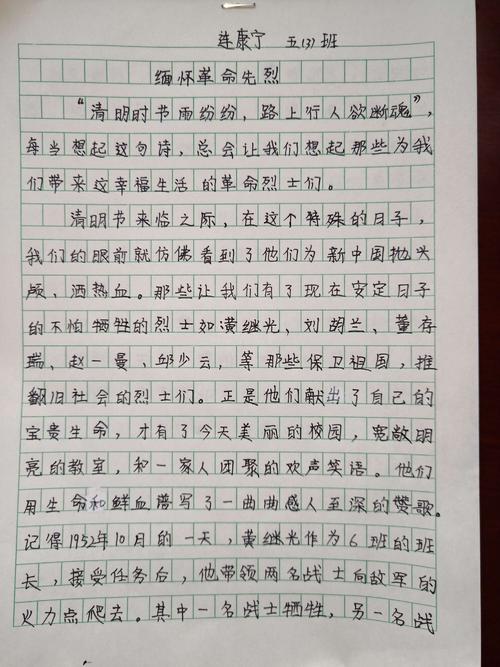 连康宁 五(3)班
缅怀革命先烈
“清明时节雨纷纷，路上行人欲断魂”，
每当想起这句诗，总会让我们想起那些为我
们带来这幸福生活的革命烈士们。
清明节来临之际，在这个特殊的日子，
我们的眼前就仿佛看到了他们为新中国抛头
颅、洒热血。那些让我们有了现在安定日子
的不怕牺牲的烈士如黄继光、刘胡兰、董存
瑞、赵一曼、邱少云，等那些保卫祖国，推
翻旧社会的烈士们。正是他们献出了自己的
宝贵生命，才有了今天美丽的校园，宽敞明
亮的教室，和一家人团聚的欢声笑语。他们
用生命和鲜血谱写了一曲曲感人至深的赞歌。
记得1952年10月的一天，黄继光作为6班的班
长，接受任务后，他带领两名战士向敌军的
火力点爬去。其中一名战士牺牲，另一名战